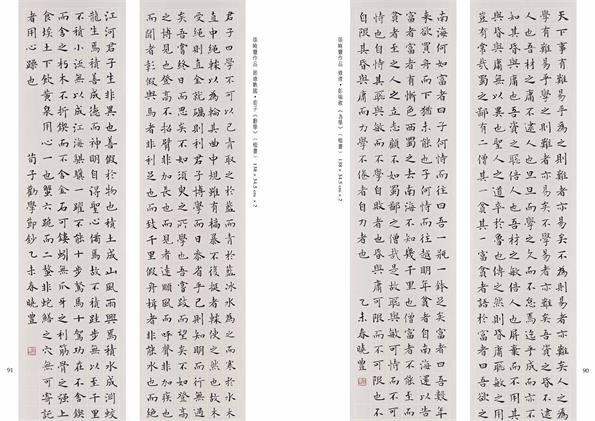 天下事有難易乎為之則難者亦易矣不為則易者亦難矣人之為
學有難易乎學之則難者亦易矣不學則易者亦難矣吾資之昏不逮
人也吾材之庸不逮人也旦旦而學之久而不怠焉迄乎成而亦不
知其昏與庸也吾資之聰倍人也吾材之敏倍人也屏棄而不用其
與昏與庸無以異也聖人之道卒於魯也傳之然則昏庸聰敏之用
豈有常哉蜀之鄙有二僧其一貧其一富貧者語於富者曰吾欲之
南海何如富者曰子何恃而往曰吾一瓶一鉢足矣富者曰吾數年
來欲買舟而下猶未能也子何恃而往越明年貧者自南海還以告
富者富者有慚色西蜀之去南海不知幾千里也僧富者不能至而
貧者至之人之立志顧不如蜀鄙之僧哉是故聰與敏可恃而不可
恃也自恃其聰與敏而不學者自敗者也昏與庸可限而不可限也不
自限其昏與庸而力學不倦者自力者也 乙未春曉豐
張曉豐作品 錄清・彭端淑《為學》（楷書） 138×34.5cm×2
90
張曉豐作品 節錄戰國・荀子《勸學》（楷書） 138×34.5cm×2
君子曰學不可以已青取之於藍而青於藍冰水為之而寒於水木
直中繩輮以為輪其曲中規雖有槁暴不復挺者輮使之然也故木
受繩則直金就礪則利君子博學而日參省乎己則知明而行無過
矣吾嘗終日而思矣不如須臾之所學也吾嘗跂而望矣不如登高
之博見也登高而招臂非加長也而見者遠順風而呼聲非加疾也
而聞者彰假輿馬者非利足也而致千里假舟楫者非能水也而絕
江河君子生非異也善假於物也積土成山風雨興焉積水成淵蛟
龍生焉積善成德而神明自得聖心備焉故不積跬步無以至千里
不積小流無以成江海騏驥一躍不能十步駑馬十駕功在不舍鍥
而舍之朽木不折鍥而不舍金石可鏤蚓無爪牙之利筋骨之強上
食埃土下飲黃泉用心一也蟹六跪而二螯非蛇鱔之穴無可寄託
者用心躁也 荀子勸學節鈔 乙未春曉豐
91